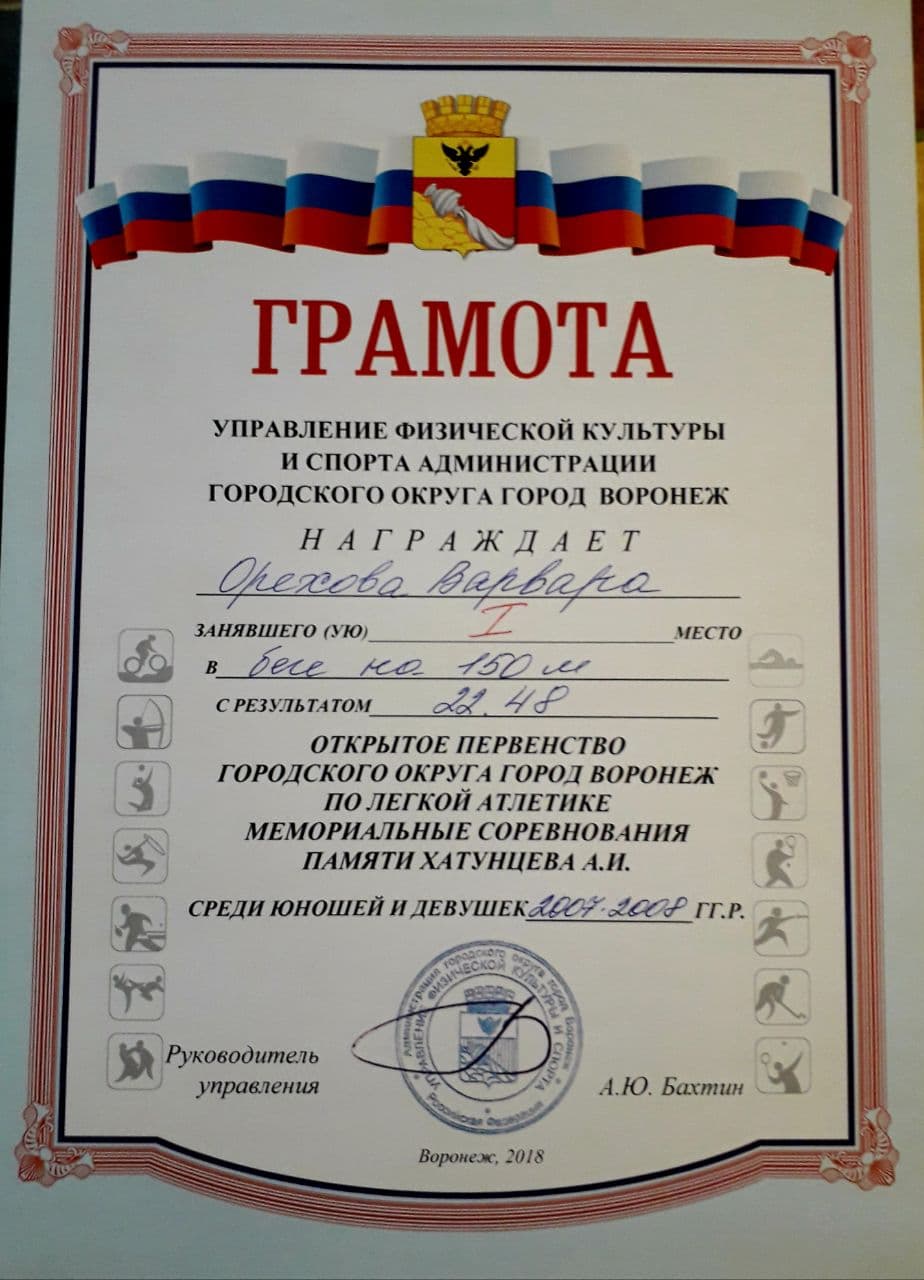 ГРАМОТА
УПРАВЛЕНИЕ ФИЗИЧЕСКОЙ КУЛЬТУРЫ
И СПОРТА АДМИНИСТРАЦИИ
ГОРОДСКОГО ОКРУГА ГОРОД ВОРОНЕЖ
НАГРАЖДАЕТ
Орехова Варвара
ЗАНЯВШЕГО (УЮ) I МЕСТО
В беге на 150 м
С РЕЗУЛЬТАТОМ 22.48
ОТКРЫТОЕ ПЕРВЕНСТВО
ГОРОДСКОГО ОКРУГА ГОРОД ВОРОНЕЖ
ПО ЛЕГКОЙ АТЛЕТИКЕ
МЕМОРИАЛЬНЫЕ СОРЕВНОВАНИЯ
ПАМЯТИ ХАТУНЦЕВА А.И.
СРЕДИ ЮНОШЕЙ И ДЕВУШЕК 2007-2008 ГГ.Р.
Администрация городского округа город Воронеж
УПРАВЛЕНИЕ ФИЗИЧЕСКОЙ КУЛЬТУРЫ И СПОРТА
Российская Федерация
Руководитель
управления
А.Ю. Бахтин
Воронеж, 2018